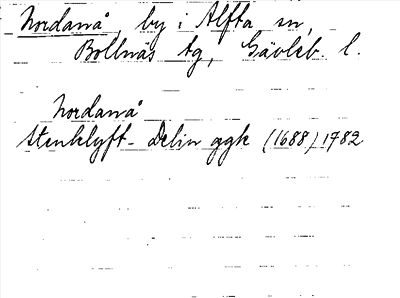 Nordanå, by i Alfta sn,
Bollnäs tg, Gävleb. l.
Nordanå
Stenklyft- Delin ggk (1688) 1782